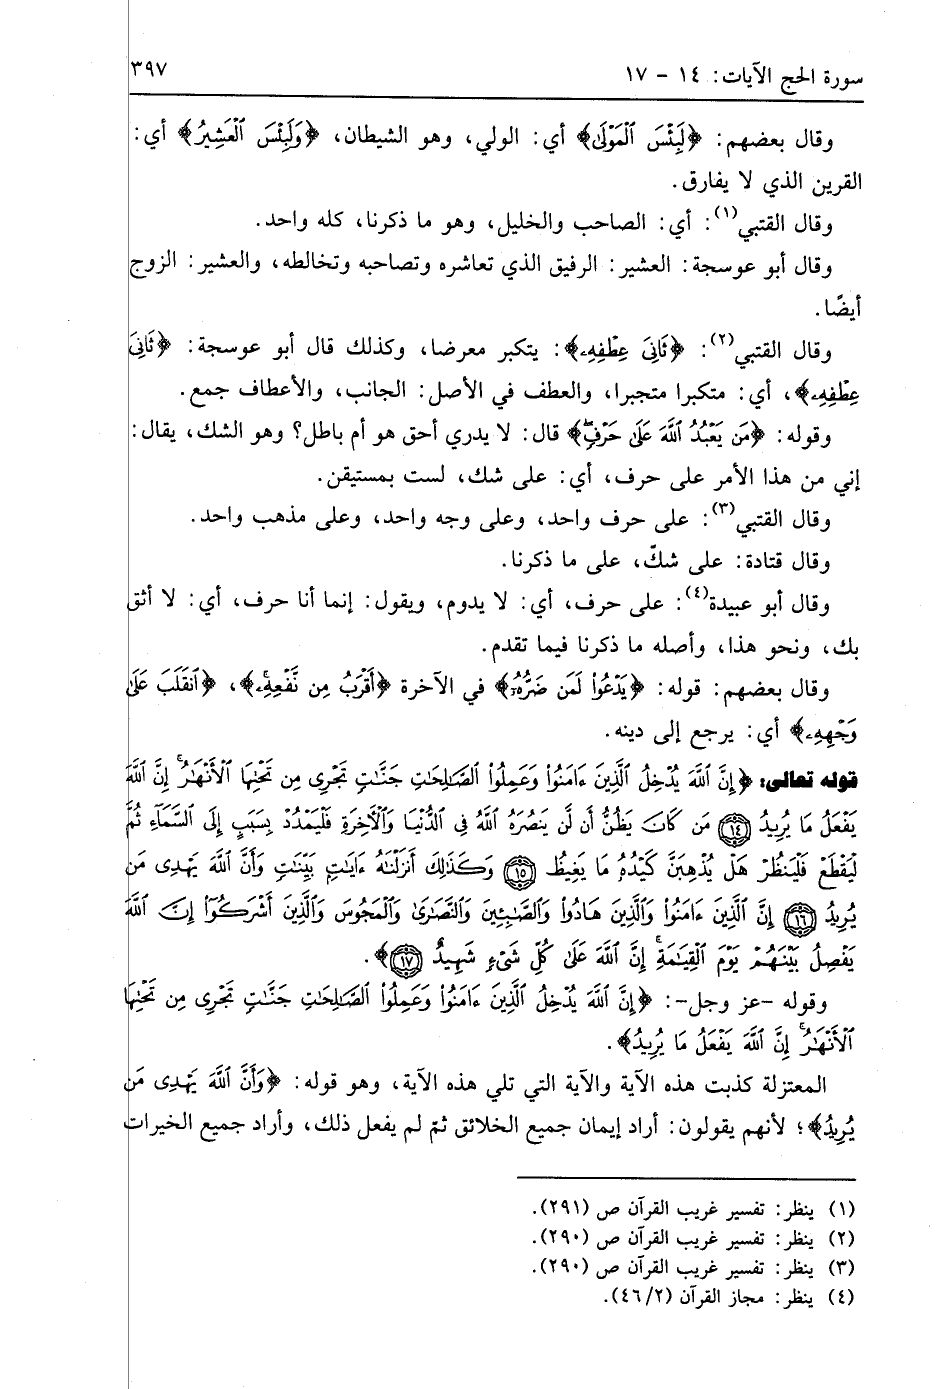 سورة الحج الآيات: ١٤ - ١٧ ٣٩٧
وقال بعضهم: ﴿لَبِئْسَ الْمَوْلَى﴾ أي: الولي، وهو الشيطان، ﴿وَلَبِئْسَ الْعَشِيرُ﴾ أي:
القرين الذي لا يفارق.
وقال القتبي(١): أي: الصاحب والخليل، وهو ما ذكرنا، كله واحد.
وقال أبو عوسجة: العشير: الرفيق الذي تعاشره وتصاحبه وتخالطه، والعشير: الزوج
أيضًا.
وقال القتبي(٢): ﴿ثَانِيَ عِطْفِهِ﴾: يتكبر معرضا، وكذلك قال أبو عوسجة: ﴿ثَانِيَ
عِطْفِهِ﴾، أي: متكبرا متجبرا، والعطف في الأصل: الجانب، والأعطاف جمع.
وقوله: ﴿مَن يَعْبُدُ اللَّهَ عَلَى حَرْفٍ﴾ قال: لا يدري أحق هو أم باطل؟ وهو الشك، يقال:
إني من هذا الأمر على حرف، أي: على شك، لست بمستيقن.
وقال القتبي(٣): على حرف واحد، وعلى وجه واحد، وعلى مذهب واحد.
وقال قتادة: على شكّ، على ما ذكرنا.
وقال أبو عبيدة(٤): على حرف، أي: لا يدوم، ويقول: إنما أنا حرف، أي: لا أثق
بك، ونحو هذا، وأصله ما ذكرنا فيما تقدم.
وقال بعضهم: قوله: ﴿يَدْعُواْ لَمَن ضَرُّهُ﴾ في الآخرة ﴿أَقْرَبُ مِن نَّفْعِهِ﴾، ﴿انقَلَبَ عَلَى
وَجْهِهِ﴾ أي: يرجع إلى دينه.
قوله تعالى: ﴿إِنَّ اللَّهَ يُدْخِلُ الَّذِينَ ءَامَنُواْ وَعَمِلُواْ الصَّالِحَاتِ جَنَّاتٍ تَجْرِي مِن تَحْتِهَا الْأَنْهَارُ إِنَّ اللَّهَ
يَفْعَلُ مَا يُرِيدُ ١٤ مَن كَانَ يَظُنُّ أَن لَّن يَنصُرَهُ اللَّهُ فِي الدُّنْيَا وَالْأَخِرَةِ فَلْيَمْدُدْ بِسَبَبٍ إِلَى السَّمَاءِ ثُمَّ
لْيَقْطَعْ فَلْيَنظُرْ هَلْ يُذْهِبَنَّ كَيْدُهُ مَا يَغِيظُ ١٥ وَكَذَلِكَ أَنزَلْنَاهُ ءَايَاتٍ بَيِّنَاتٍ وَأَنَّ اللَّهَ يَهْدِي مَن
يُرِيدُ ١٦ إِنَّ الَّذِينَ ءَامَنُواْ وَالَّذِينَ هَادُواْ وَالصَّابِئِينَ وَالنَّصَارَى وَالْمَجُوسَ وَالَّذِينَ أَشْرَكُواْ إِنَّ اللَّهَ
يَفْصِلُ بَيْنَهُمْ يَوْمَ الْقِيَامَةِ إِنَّ اللَّهَ عَلَى كُلِّ شَيْءٍ شَهِيدٌ ١٧﴾.
وقوله -عز وجل-: ﴿إِنَّ اللَّهَ يُدْخِلُ الَّذِينَ ءَامَنُواْ وَعَمِلُواْ الصَّالِحَاتِ جَنَّاتٍ تَجْرِي مِن تَحْتِهَا
الْأَنْهَارُ إِنَّ اللَّهَ يَفْعَلُ مَا يُرِيدُ﴾.
المعتزلة كذبت هذه الآية والآية التي تلي هذه الآية، وهو قوله: ﴿وَأَنَّ اللَّهَ يَهْدِي مَن
يُرِيدُ﴾؛ لأنهم يقولون: أراد إيمان جميع الخلائق ثمّ لم يفعل ذلك، وأراد جميع الخيرات
(١) ينظر: تفسير غريب القرآن ص (٢٩١).
(٢) ينظر: تفسير غريب القرآن ص (٢٩٠).
(٣) ينظر: تفسير غريب القرآن ص (٢٩٠).
(٤) ينظر: مجاز القرآن (٤٦/٢).